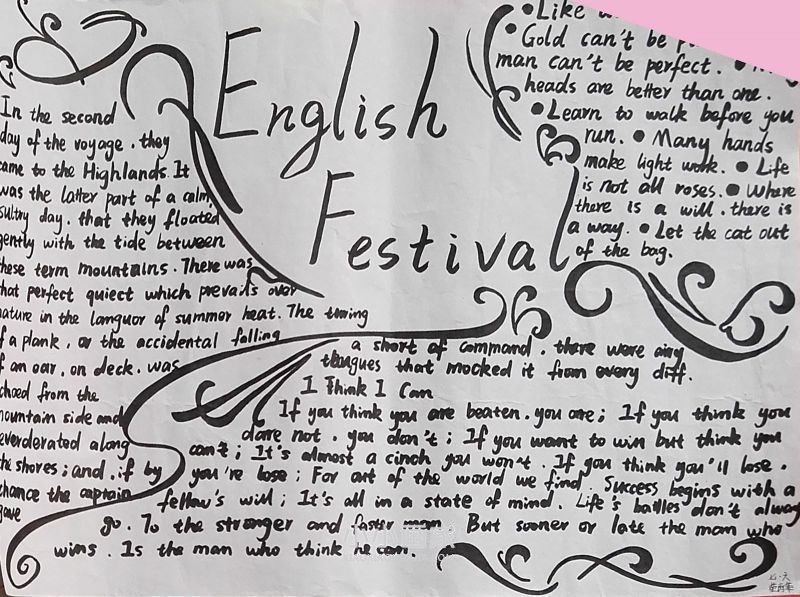 English
Festival
In the second
day of the voyage . they
ame to the Highlands. It
was the latter part of a calm,
sultry day. that they floated
gently with the tide between
these term mountains . There was
hat perfect quiect which prevails over
nature in the languor of summer heat. The
f a plank , or the accidental falling
f an oar , on deck . was
choed from the
mountain side and
everderated along
the shores ; and . if by
chance the captain
gave
a short of command . there were airy
that mocked it from every diff.
• Like
• Gold can't be
man can't be perfect. •
heads are better than one.
• Learn to walk before you
run. • Many hands
make light work. • Life
is not all roses. • Where
there is a will . there is
a way. • Let the cat out
of the bag.
I Think I Can
If you think you are beaten . you are ; If you think you
dare not . you don't ; If you want to win but think you
can't ; It's almost a cinch you won't . If you think you'll lose .
you're lose ; For out of the world we find . Success begins with a
fellow's will ; It's all in a state of mind . Life's battles don't always
go . To the stronger and faster man . But sooner or late the man who
wins . Is the man who think he can.